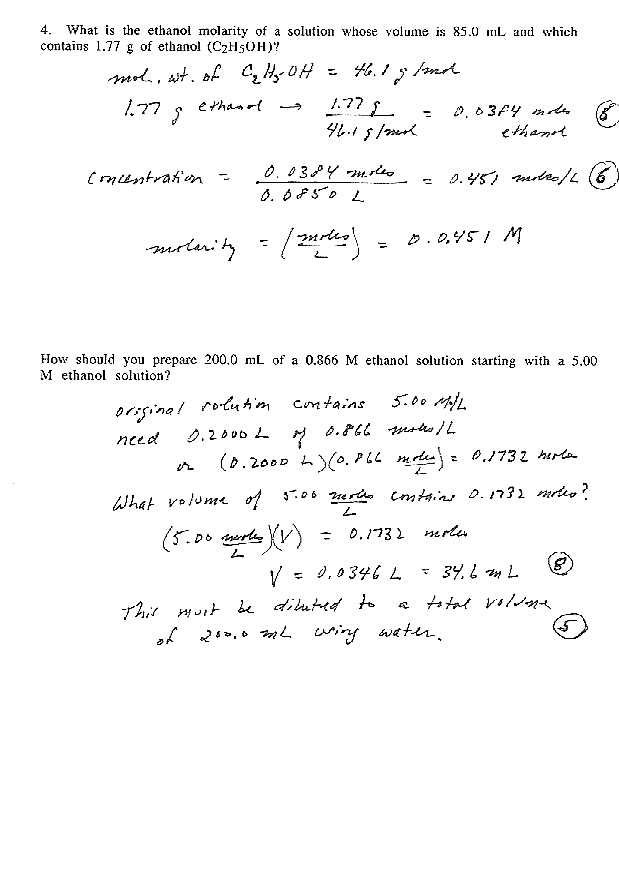 4. What is the ethanol molarity of a solution whose volume is 85.0 mL and which
contains 1.77 g of ethanol (C2H5OH)?
mol. wt. of C2H5OH = 46.1 g/mol
1.77 g ethanol → 1.77 g / 46.1 g/mol = 0.0384 moles ethanol (8)
Concentration = 0.0384 moles / 0.0850 L = 0.451 moles/L (6)
molarity = (moles/L) = 0.0.451 M
How should you prepare 200.0 mL of a 0.866 M ethanol solution starting with a 5.00
M ethanol solution?
original solution contains 5.00 M/L
need 0.2000 L of 0.866 moles/L
or (0.2000 L)(0.866 moles/L) = 0.1732 moles
What volume of 5.00 moles/L contains 0.1732 moles?
(5.00 moles/L)(V) = 0.1732 moles
V = 0.0346 L = 34.6 mL (8)
This must be diluted to a total volume
of 200.0 mL using water. (5)